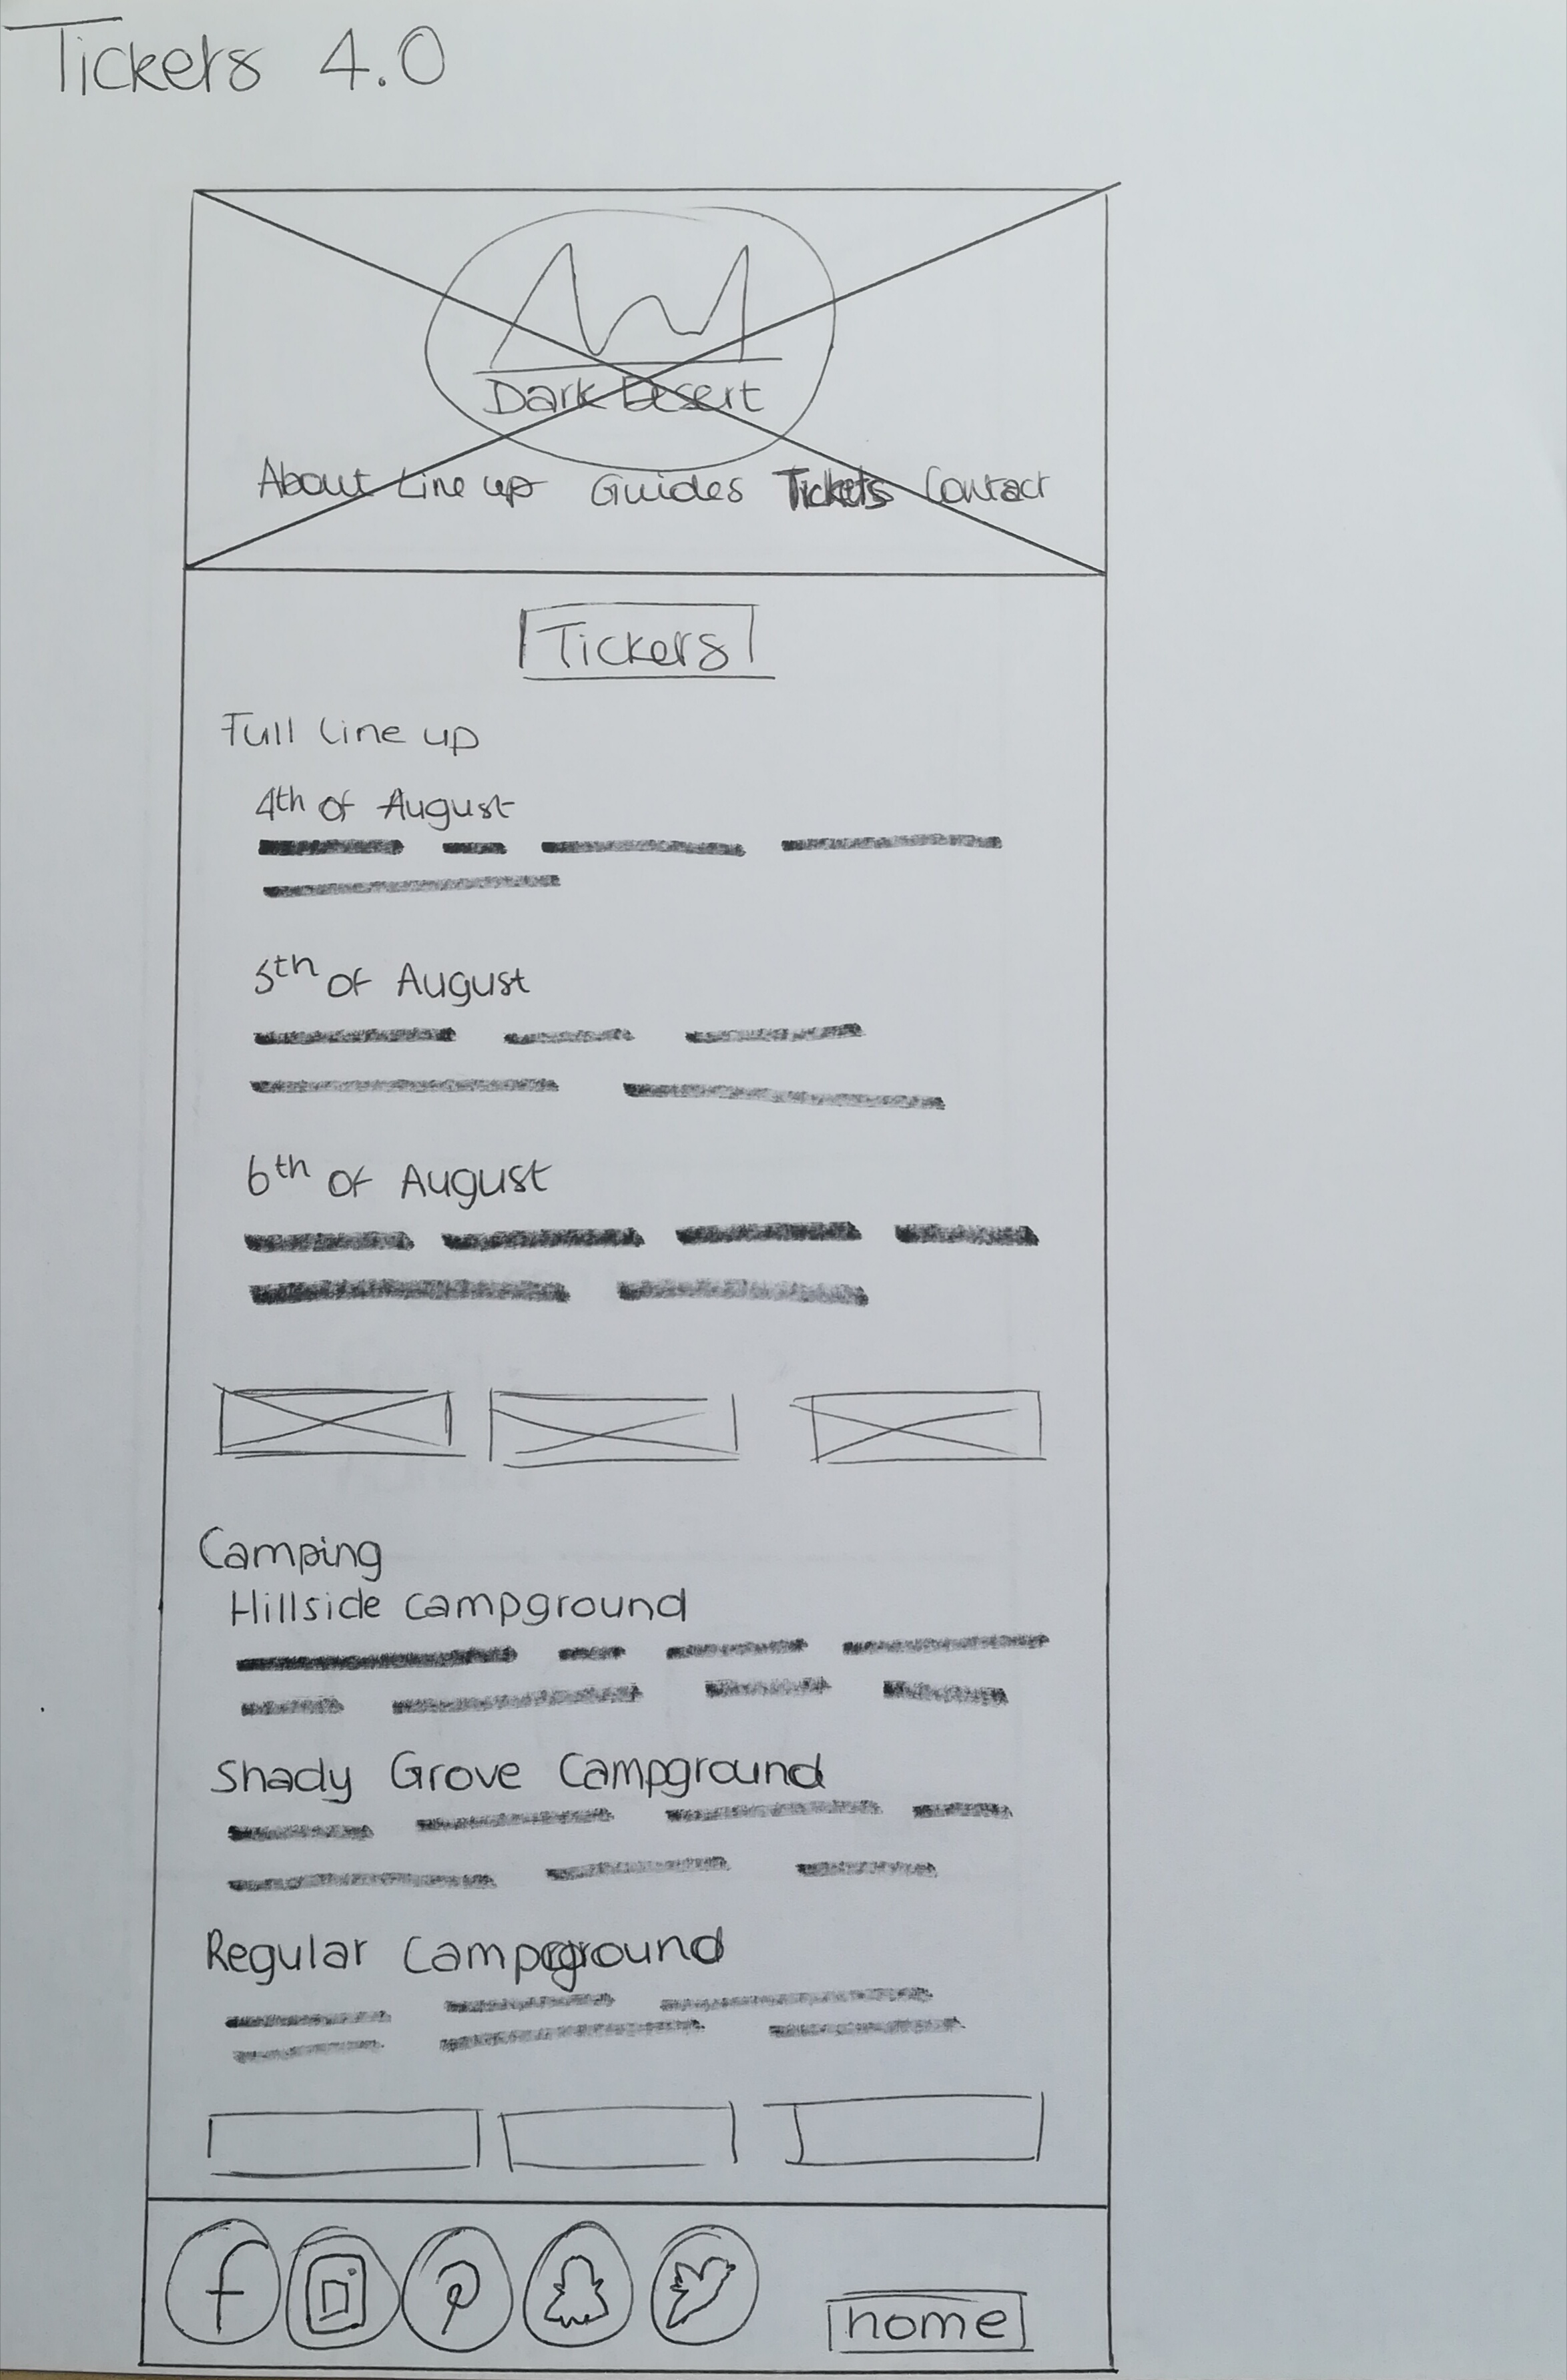 Tickets 4.0
Dark Desert
About Line up Guides Tickets Contact
Tickets
Full line up
4th of August
5th of August
6th of August
Camping
Hillside campground
Shady Grove Campground
Regular Campground
f
home